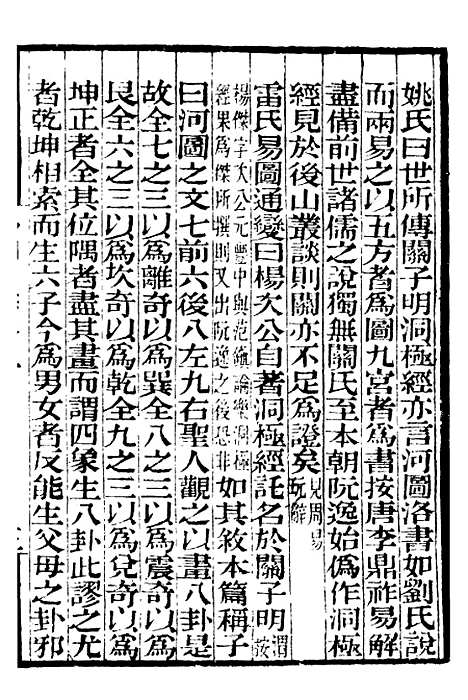 姚氏曰世所傳關子明洞極經亦言河圖洛書如劉氏說
而兩易之以五方者為圖九宮者為書按唐李鼎祚易解
盡備前世諸儒之說獨無關氏至本朝阮逸始偽作洞極
經見於後山叢談則關亦不足為證矣見周易玩辭
雷氏易圖通變曰楊次公自著洞極經託名於關子明渭按
楊傑字次公元豐中與范鎮論樂洞極
經果為傑所撰則又出阮逸之後恐非如其敘本篇稱子
曰河圖之文七前六後八左九右聖人觀之以畫八卦是
故全七之三以為離奇以為巽全八之三以為震奇以為
艮全六之三以為坎奇以為乾全九之三以為兌奇以為
坤正者全其位隅者盡其畫而謂四象生八卦此謬之尤
者乾坤相索而生六子今為男女者反能生父母之卦邪